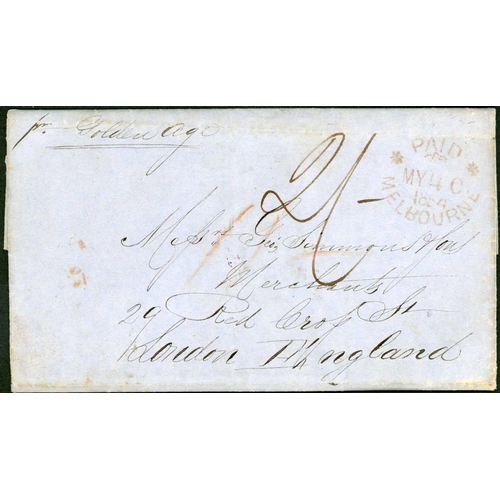 pr Golden Age
2/-
PAID
MY 4 C
1854
MELBOURNE
Messrs Simmons & Son
Merchants
29 Red Cross St
London England